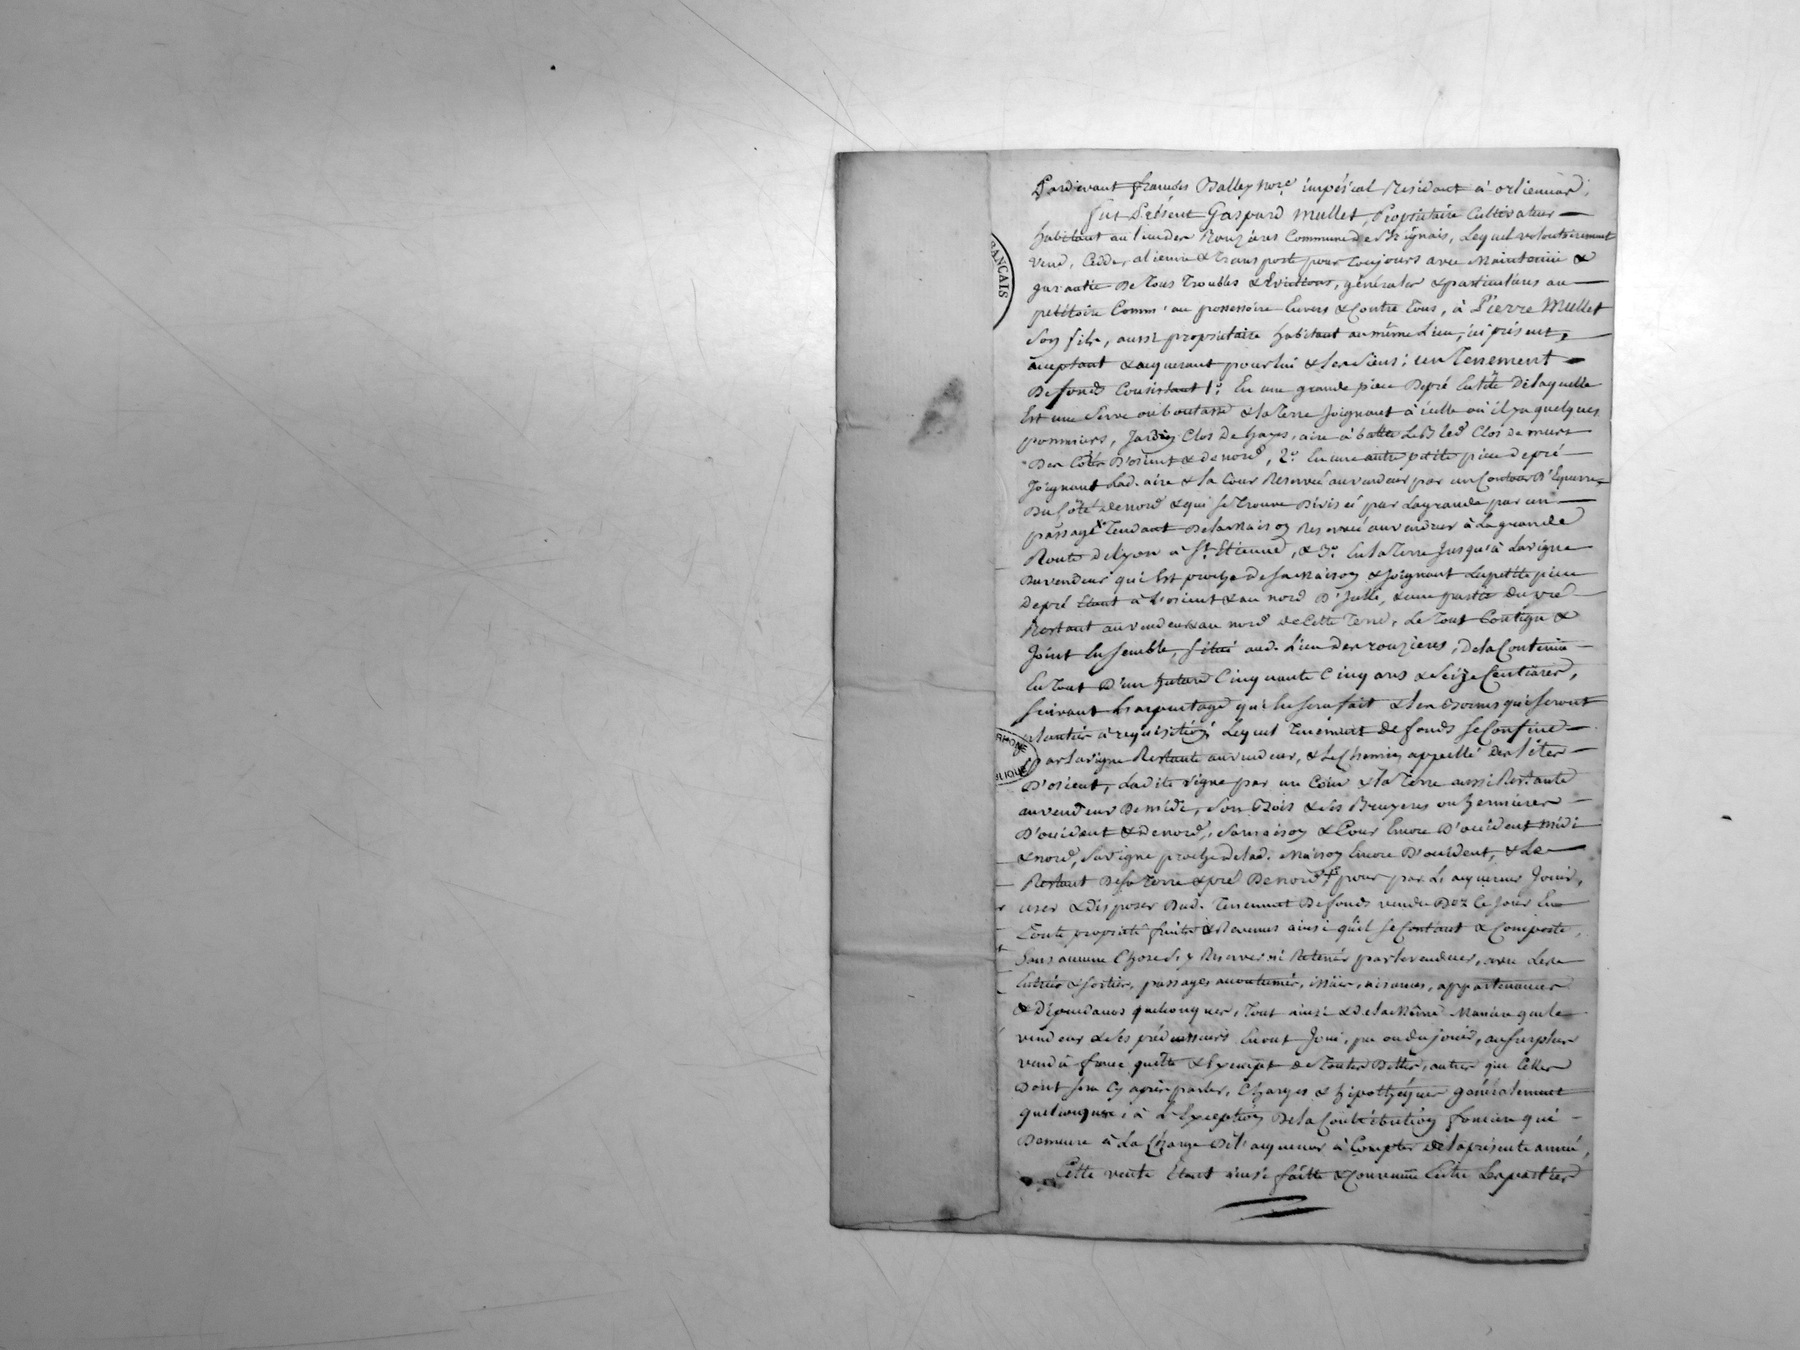 Pardevant francois Balley Nore. impérial Residant à orliénnas,
fut Présent Gaspard Mullet, Propriétaire Cultivateur
habitant au lieu des Ronzieres Commune de Brignais, Lequel volontairement
vend, Cedde, alienne & transporte pour toujours avec Maintenüe &
garantie De tous troubles & Evictions, générales & particulieres au
petitoire Comm' au possessoire Envers & Contre tous, à Pierre Mullet
Son fils, aussi propriétaire habitant au même Lieu, ici présent,
acceptant & acquerant pour lui & les siens; un Tenement
De fonds Consistant 1°. En une grande piece De pré En tête De laquelle
Est une Serve ou boutasse & la Terre Joignant à icelle où il y a quelques
pommiers, Jardin Clos De hayes, aire à battre Le Bled Clos de murs
Des Côtés D'orient & de nord, 2°. En une autre petite piece de pré
Joignant Lad. aire & la Cour Reservée au vendeur par un Contour D'Equerre,
Du Côté de nord & qui se trouve Divisée par La grande par un
passage tendant De la Maison Reservée au vendeur à La grande
Route de Lyon à St. Etienne, & 3°. En la Terre Jusqu'à La vigne
Du vendeur qui Est proche de sa Maison & Joignant La petite piece
De pré Etant à L'orient & au nord D'Icelle, & une partie du pré
Restant au vendeur & au nord de Cette Terre, Le tout Contigu &
Joint Ensemble, situé aud. Lieu des ronzieres, De la Contenüe
En tout D'un hectare Cinquante Cinq ares & seize Centiares,
Suivant L'arpentage qui En Sera fait & les Bornes qui seront
plantées à requisition; Lequel Tenement de fonds se Confine
par La vigne Restante au vendeur, & Le Chemin appellé Des
D'orient, Ladite vigne par un Coin & la Terre aussi Restante
au vendeur De midi, Son Bois & ses Bruyeres ou hermieres
D'occident & De nord, Sa maison & Cour Encore D'occident midi
& nord, Sa vigne proche de lad. Maison Encore D'occident, & Le
Restant De sa Terre & pré De nord pour par L'acquereur Jouir,
user & disposer Dud. Tenement De fonds vendu Dez Ce Jour En
Toute propriété fruits & Revenus ainsi qu'il se Contient & Comporte,
Sans aucune Chose s'y Reserver ni Retenir par le vendeur, avec Les
Entrées & sorties, passages accoutumés, issües, aisances, appartenances
& Dépendances quelconques, tout ainsi & De la Même Maniere que le
vendeur & ses prédecesseurs En ont Joui, pu ou du jouir, au surplus
vend à franc quitte & Exempt de toutes Dettes, autres que Celles
Dont sera Cy après parler, Charges & hipotheques Généralement
quelconques, à L'Exception De la Contribution fonciere qui
Demeure à La Charge De l'acquereur à Compter de la présente année,
Cette vente Etant ainsi faitte & Convenüe Entre Les parties
ANÇAIS
RHÔNE
BLIQUE